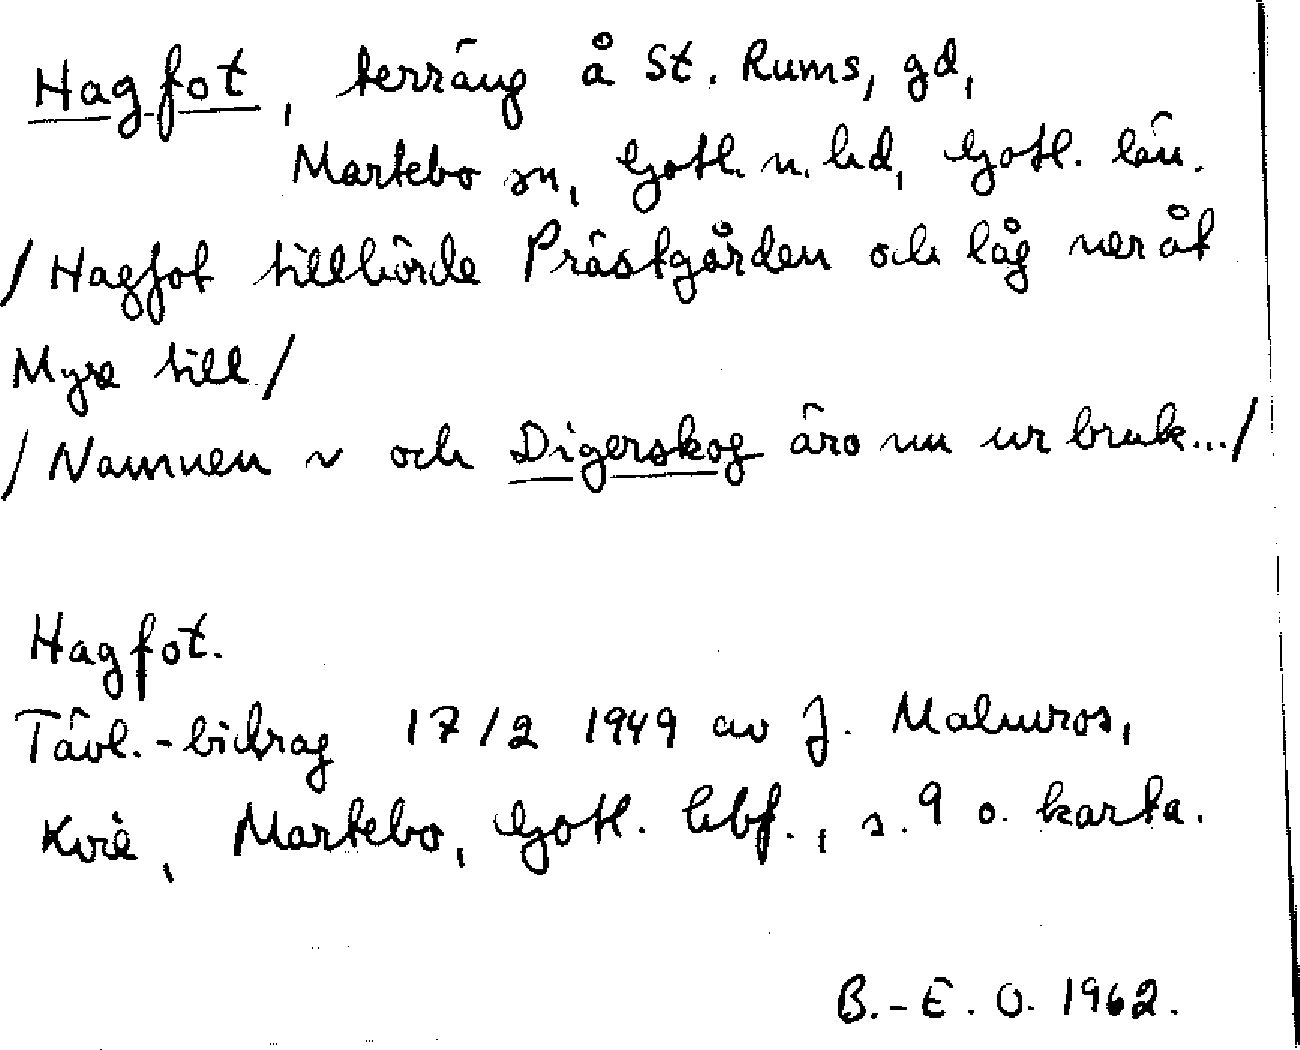 Hagfot, terräng å St. Rums, gd,
Martebo sn, Gotl. n. hd, Gotl. län.
/Hagfot tillhörde Prästgården och låg neråt
Myra till/
/Namnen ~ och Digerskog äro nu ur bruk.../
Hagfot.
Tävl.-bidrag 17/2 1949 av J. Malmros,
Kvie, Martebo, Gotl. hbf., s. 9 o. karta.
B.-E. O. 1962.